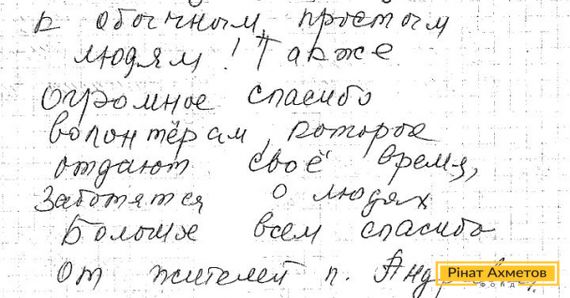 к обычным, простым
людям! Также
огромное спасибо
волонтёрам, которое
отдают своё время,
Заботятся о людях
Большое всем спасибо
От жителей п.
Рінат Ахметов
ФОНД